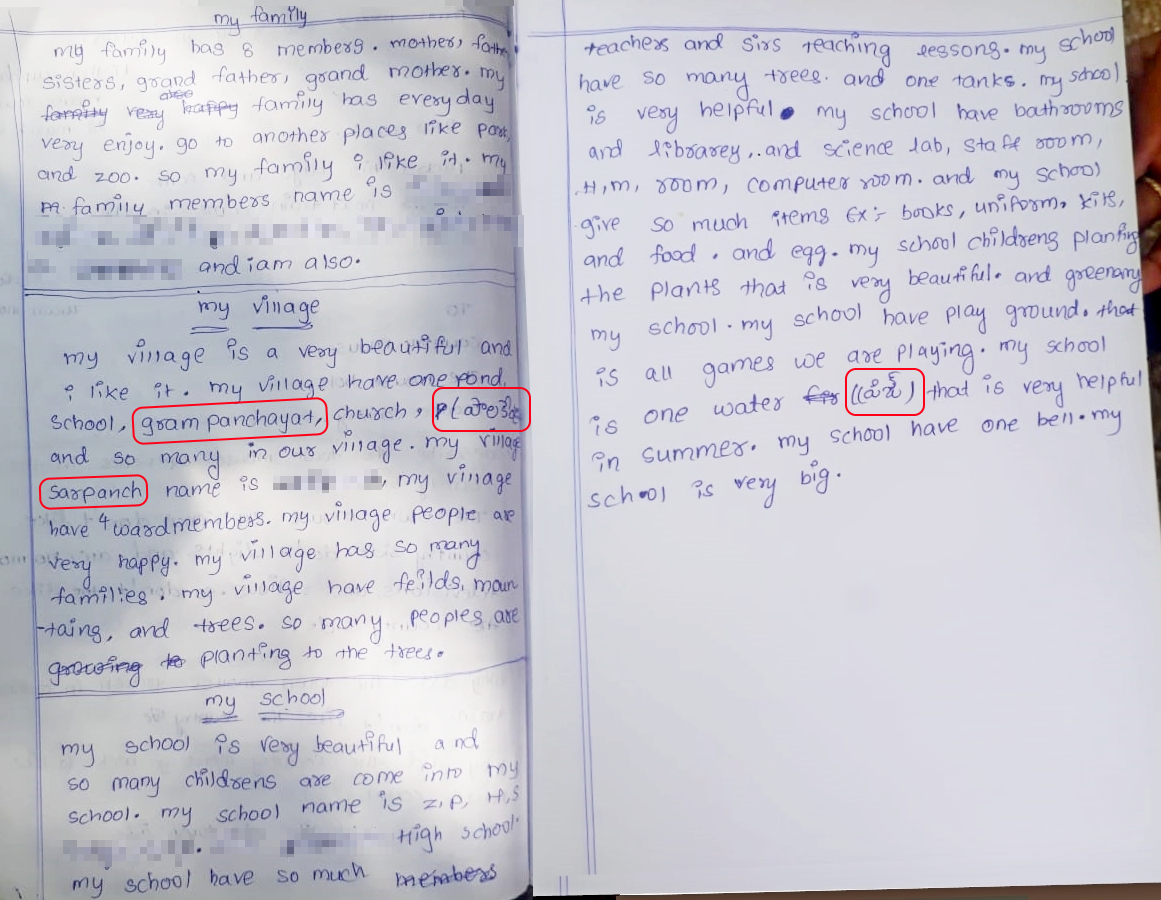 my family
my family has 8 members. mother, father
sisters, grand father, grand mother. my
family very also happy family has everyday
very enjoy. go to another places like park,
and zoo. so my family i like it. my
m. family members name is
and iam also.
my village
my village is a very beautiful and
i like it. my village have one pond,
school, gram panchayat, church,
and so many in our village. my village
sarpanch name is , my village
have 4 wardmembers. my village people are
very happy. my village has so many
families. my village have feilds, moun
-tains, and trees. so many peoples, are
growing to planting to the trees.
my school
my school is very beautiful and
so many childrens are come into my
school. my school name is Z,P, H,S
High school.
my school have so much members
teachers and sirs teaching lessons. my school
have so many trees. and one tanks. my school
is very helpful. my school have bathrooms
and librarey,. and science lab, staff room,
H,m, room, computer room. and my school
give so much items Ex:- books, uniform, kits,
and food. and egg. my school childrens planting
the plants that is very beautiful. and greenary
my school. my school have play ground. that
is all games we are playing. my school
is one water that is very helpful
in summer. my school have one bell. my
school is very big.